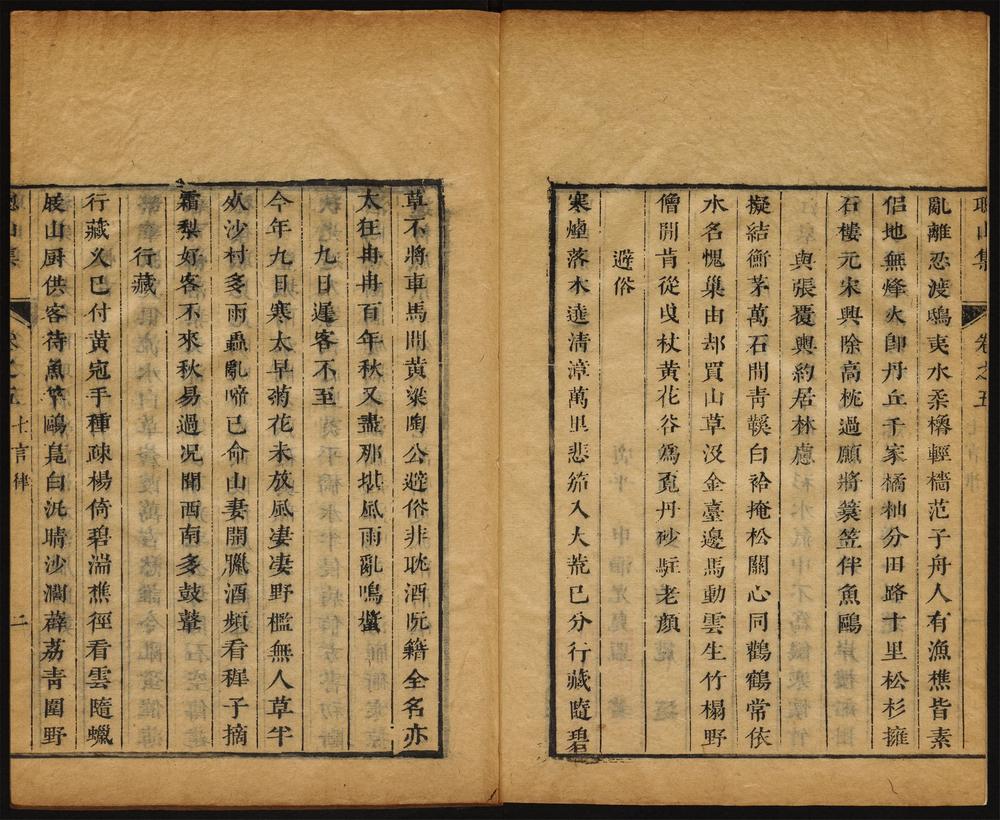 聰山集
卷之五
亂離忍渡鴟夷水柔櫓輕檣范子舟人有漁樵皆素
侶地無烽火卽丹丘千家橘柚分田路十里松杉擁
石樓元宋興除高枕過願將簑笠伴魚鷗
與張覆輿約居林慮
擬結衡茅萬石間靑鞵白袷掩松關心同鸛鶴常依
水名愧巢由却買山草沒金臺邊馬動雲生竹榻野
僧閒肯從曳杖黃花谷爲覓丹砂駐老顏
避俗
寒煙落木遶淸漳萬里悲笳入大荒已分行藏隨碧
草不將車馬問黃粱陶公避俗非耽酒阮籍全名亦
太狂冉冉百年秋又盡那堪風雨亂鳴螿
九日遲客不至
今年九日寒太早菊花未放風凄凄野檻無人草半
欹沙村多雨蟲亂啼已命山妻開臘酒頻看稺子摘
霜梨好客不來秋易過况聞西南多鼓鼙
行藏
行藏义巳付黃寃手種疎楊倚碧湍樵徑看雲隨蠟
屐山厨供客待魚竿鷗鳧白汎晴沙濶薜荔靑圍野
聰山集
卷之五
七言律
二